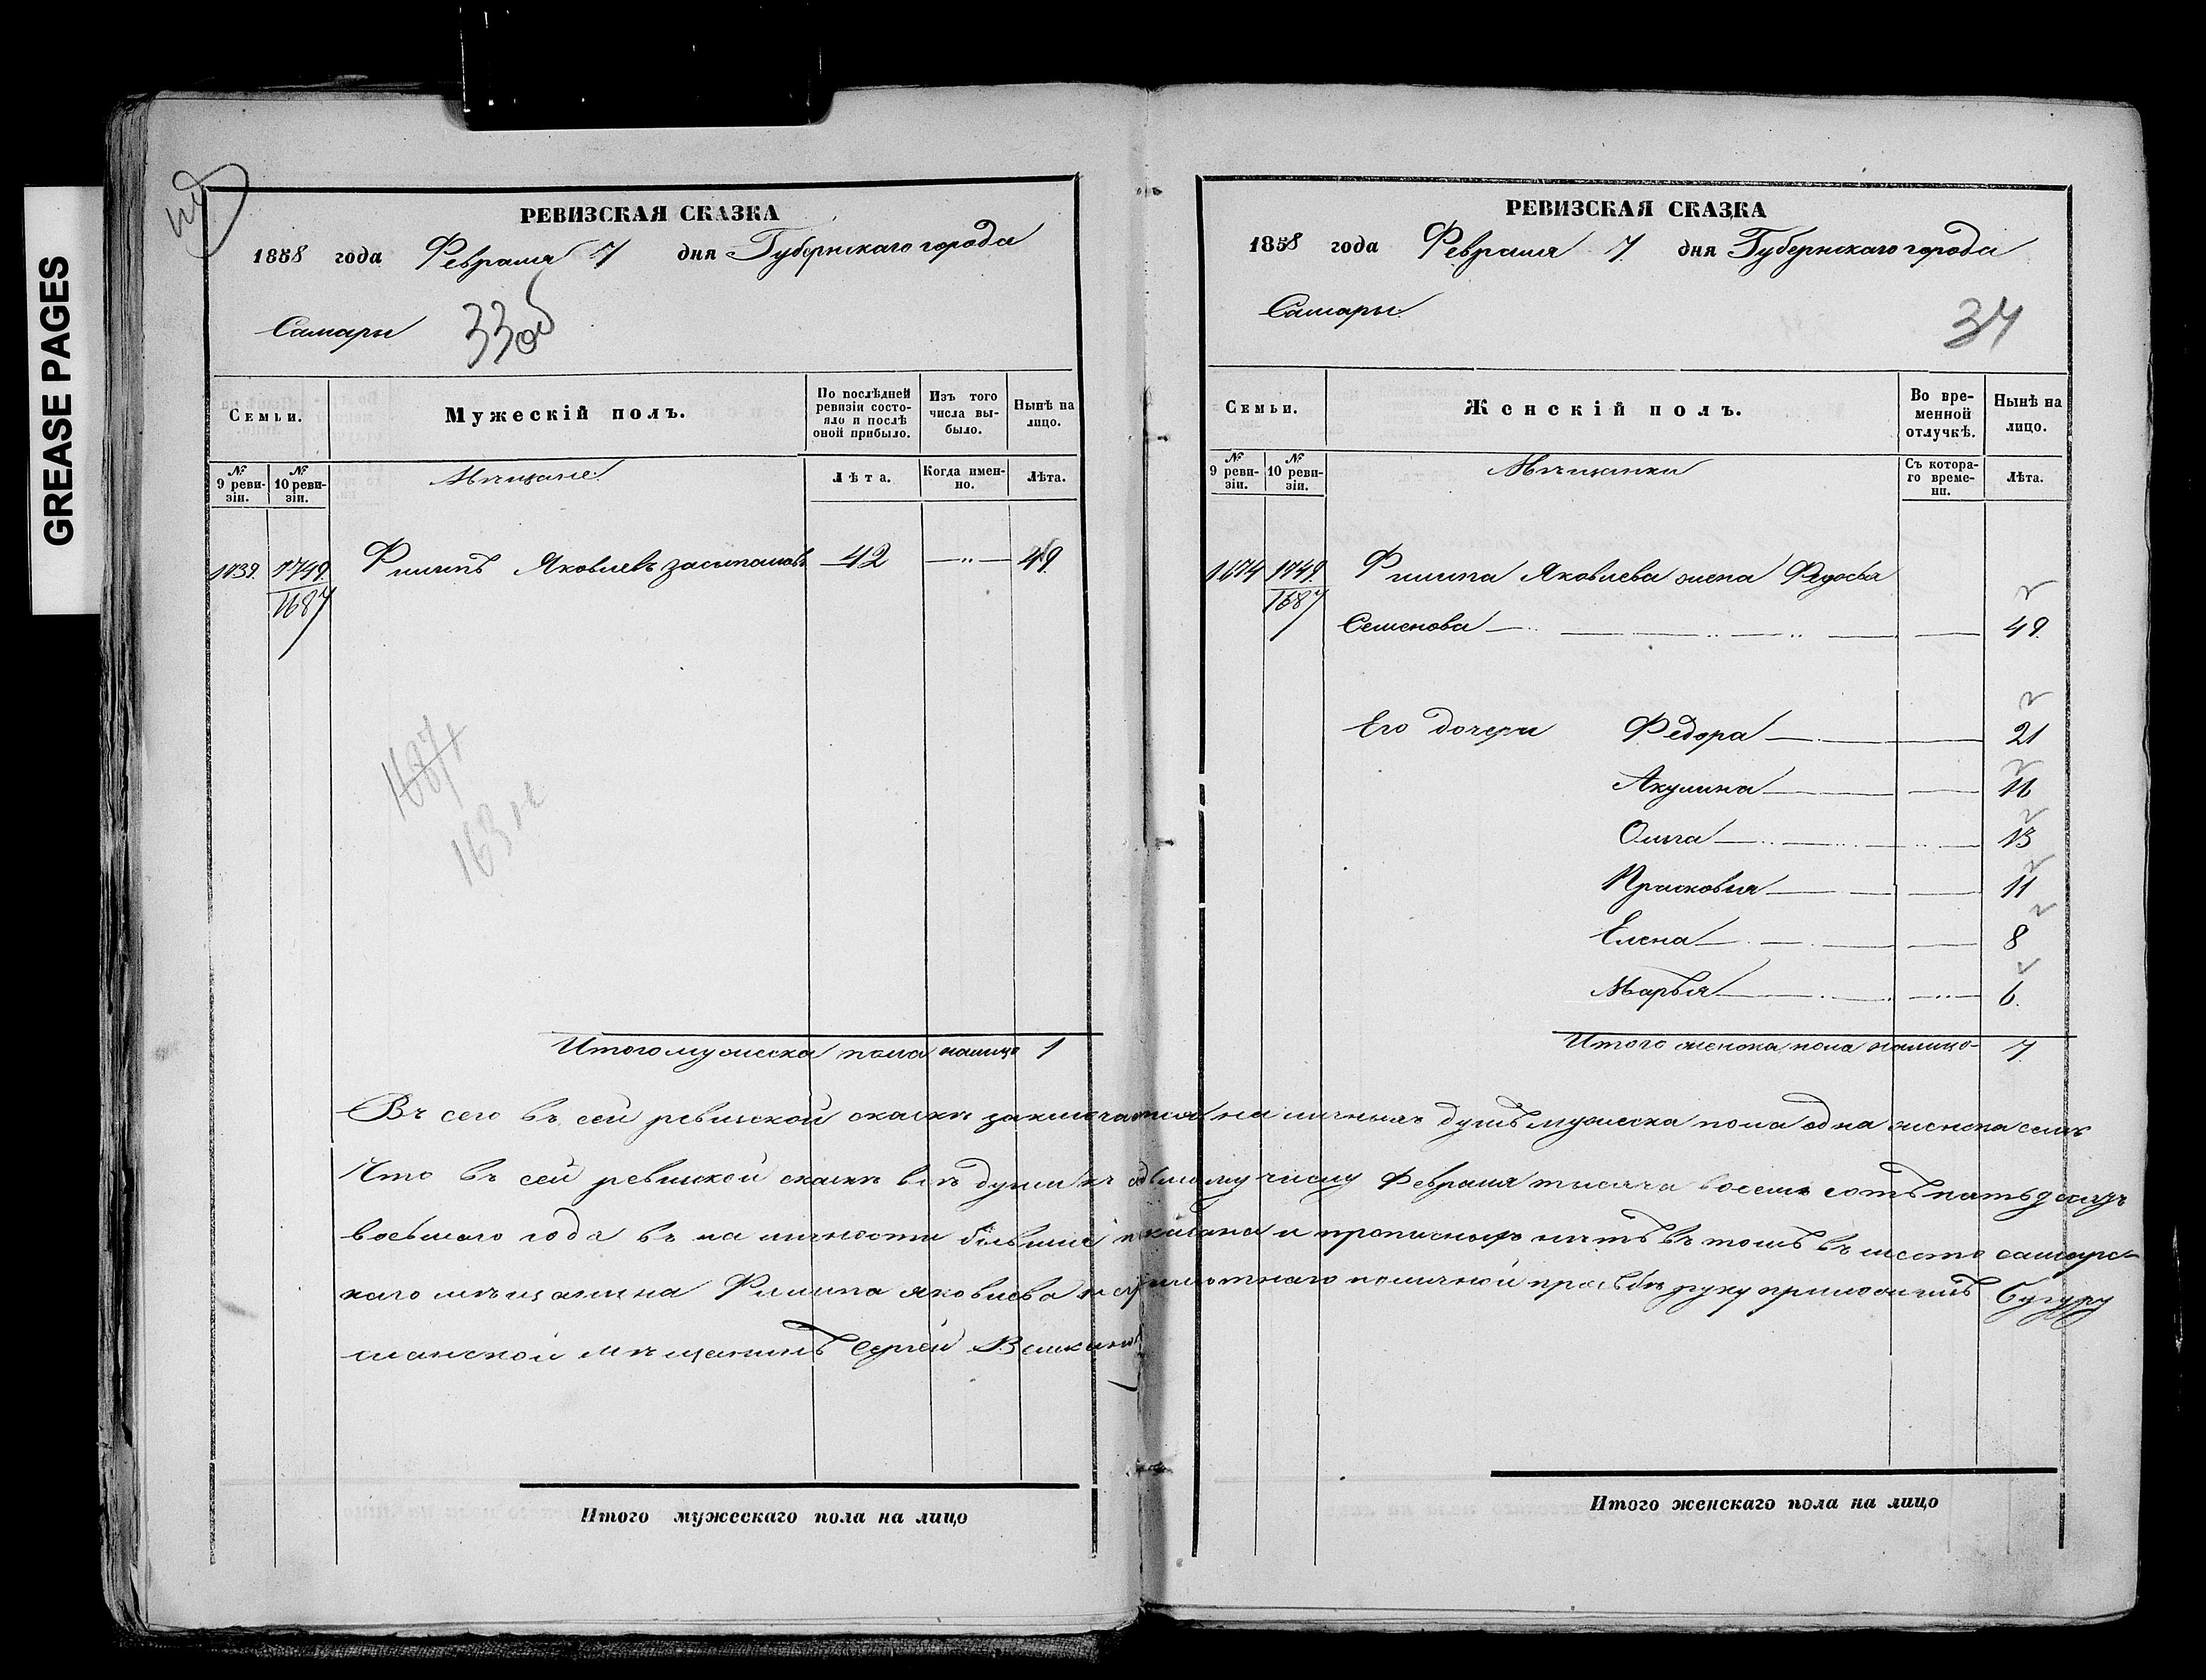 GREASE PAGES
РЕВИЗСКАЯ СКАЗКА
1858 года Февраля 7 дня Губернскаго города
Самары
33об
Семьи.
Мужескій полъ.
По послѣдней ревизіи состояло и послѣ оной прибыло.
Изъ того числа выбыло.
Нынѣ на лицо.
№ 9 ревизіи.
№ 10 ревизіи.
Мѣщане.
Лѣта.
Когда именно.
Лѣта.
1739. 1749. Филипъ Яковлевъ 42 —"— 49.
1687
1687
163
Итого мужеска пола налицо 1
Въ сего въ сей ревиской скаскѣ заключается на личныхъ душъ мужеска пола одна женска семь
Что въ сей ревиской скаскѣ всѣ души къ седьмому числу Февраля тысяча восемь сотъ пятьдесятъ
восьмаго года въ на личности бывшие показана и прописныхъ нѣтъ въ томъ въ место самарс-
каго мѣщанина Филипа Яковлева неграмотнаго поличной прозьбѣ руку приложилъ Бугуру
сланской мѣщанинъ Сергѣй
Итого мужескаго пола на лицо
РЕВИЗСКАЯ СКАЗКА
1858 года Февраля 7 дня Губернскаго города
Самары.
34
Семьи.
Женскій полъ.
Во временной отлучкѣ.
Нынѣ на лицо.
№ 9 ревизіи.
№ 10 ревизіи.
Мѣщанки
Съ котораго времени.
Лѣта.
1674 1749. Филипа Яковлева жена Федосья
1687
Семенова 49.
Его дочери Федора 21
Акулина 16
Ольга 13
Прасковья 11
Елена 8
Марья 6.
Итого женска пола налицо 7
Итого женскаго пола на лицо